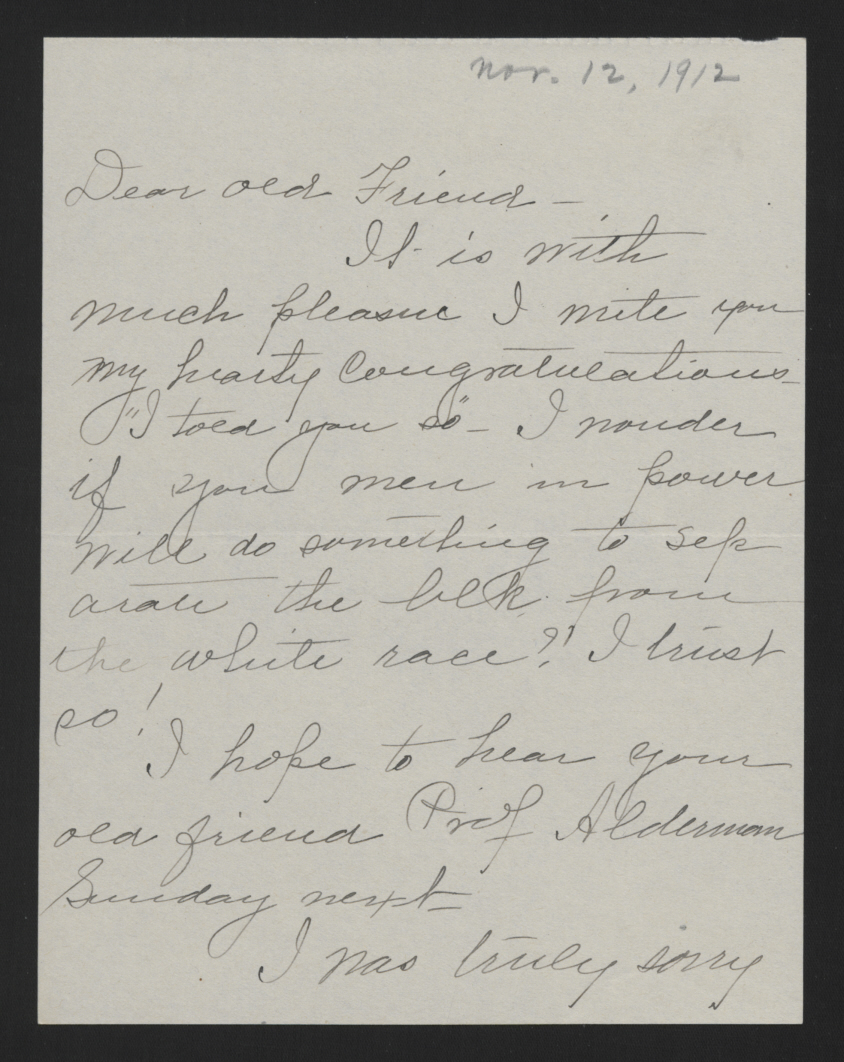 Nov. 12, 1912
Dear old Friend -
It is with
much pleasure I write you
my hearty Congratulations -
"I told you so" - I wonder
if you men in power
will do something to sep
arate the blk. from
the white race?! I trust
so!
I hope to hear your
old friend Prof Alderman
Sunday next -
I was truly sorry